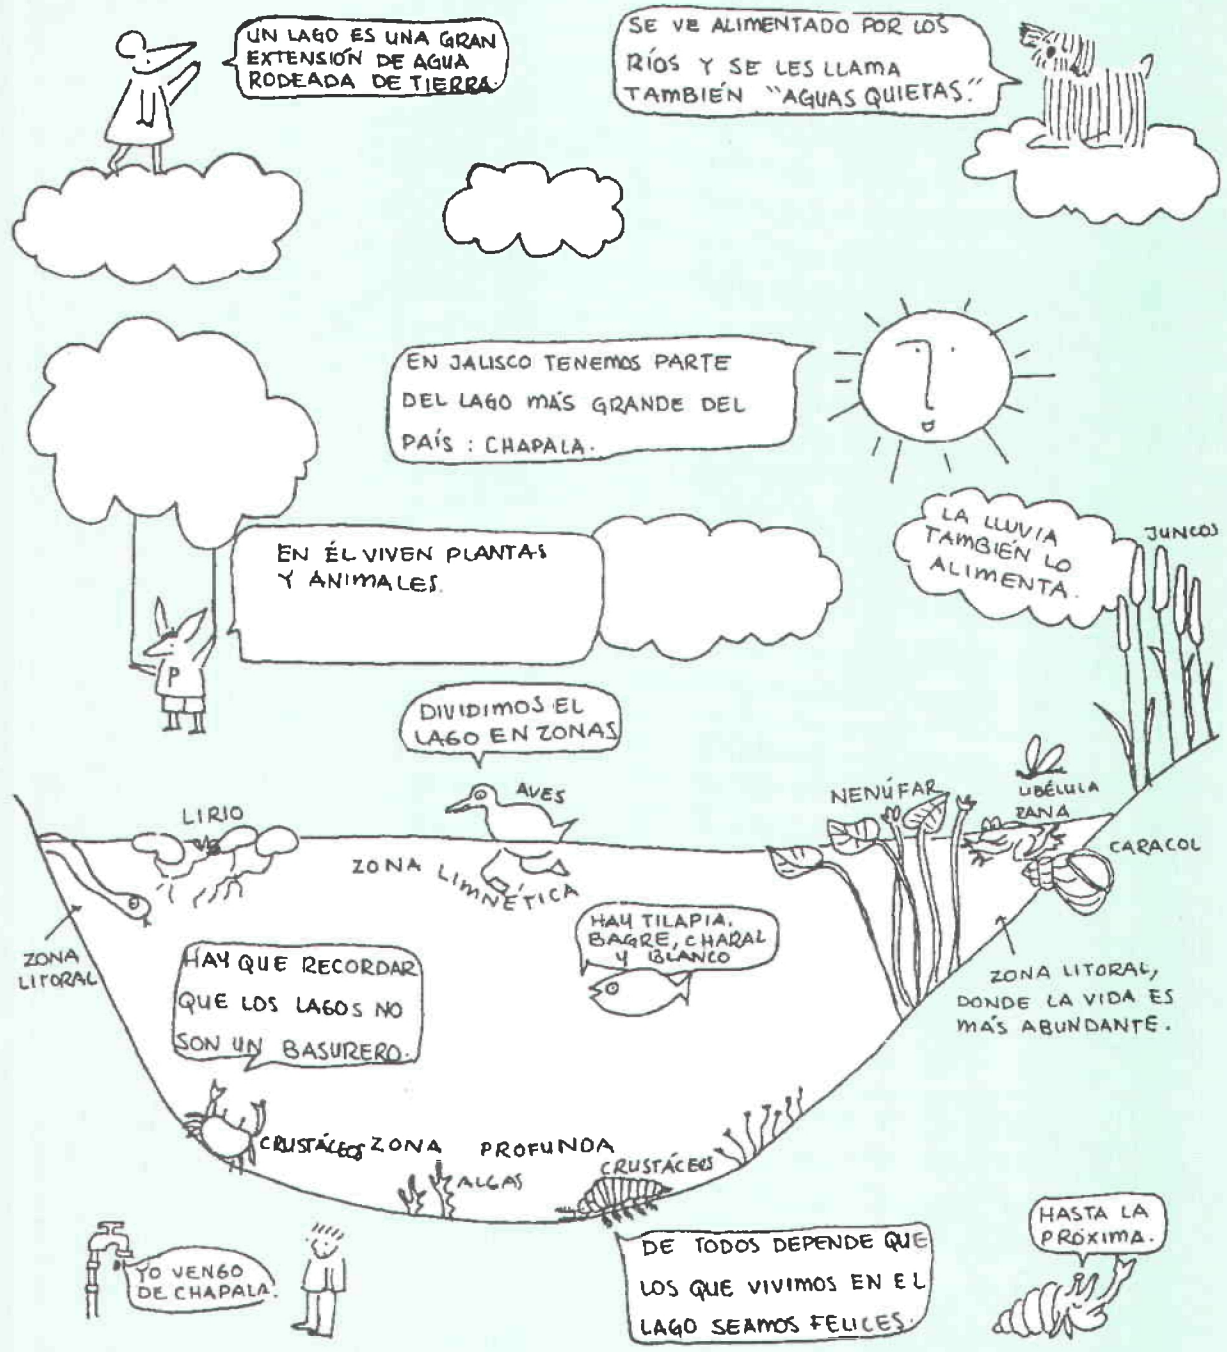 UN LAGO ES UNA GRAN
EXTENSIÓN DE AGUA
RODEADA DE TIERRA.
SE VE ALIMENTADO POR LOS
RÍOS Y SE LES LLAMA
TAMBIÉN "AGUAS QUIETAS."
EN JALISCO TENEMOS PARTE
DEL LAGO MÁS GRANDE DEL
PAÍS : CHAPALA.
LA LLUVIA
TAMBIÉN LO
ALIMENTA.
JUNCOS
EN ÉL VIVEN PLANTAS
Y ANIMALES.
P
DIVIDIMOS EL
LAGO EN ZONAS
LIRIO
AVES
NENÚFAR
LIBÉLULA
RANA
CARACOL
ZONA LIMNÉTICA
ZONA
LITORAL
HAY TILAPIA,
BAGRE, CHARAL
Y BLANCO
HAY QUE RECORDAR
QUE LOS LAGOS NO
SON UN BASURERO.
ZONA LITORAL,
DONDE LA VIDA ES
MÁS ABUNDANTE.
CRUSTÁCEOS
ZONA PROFUNDA
ALGAS
CRUSTÁCEOS
YO VENGO
DE CHAPALA.
DE TODOS DEPENDE QUE
LOS QUE VIVIMOS EN EL
LAGO SEAMOS FELICES.
HASTA LA
PRÓXIMA.